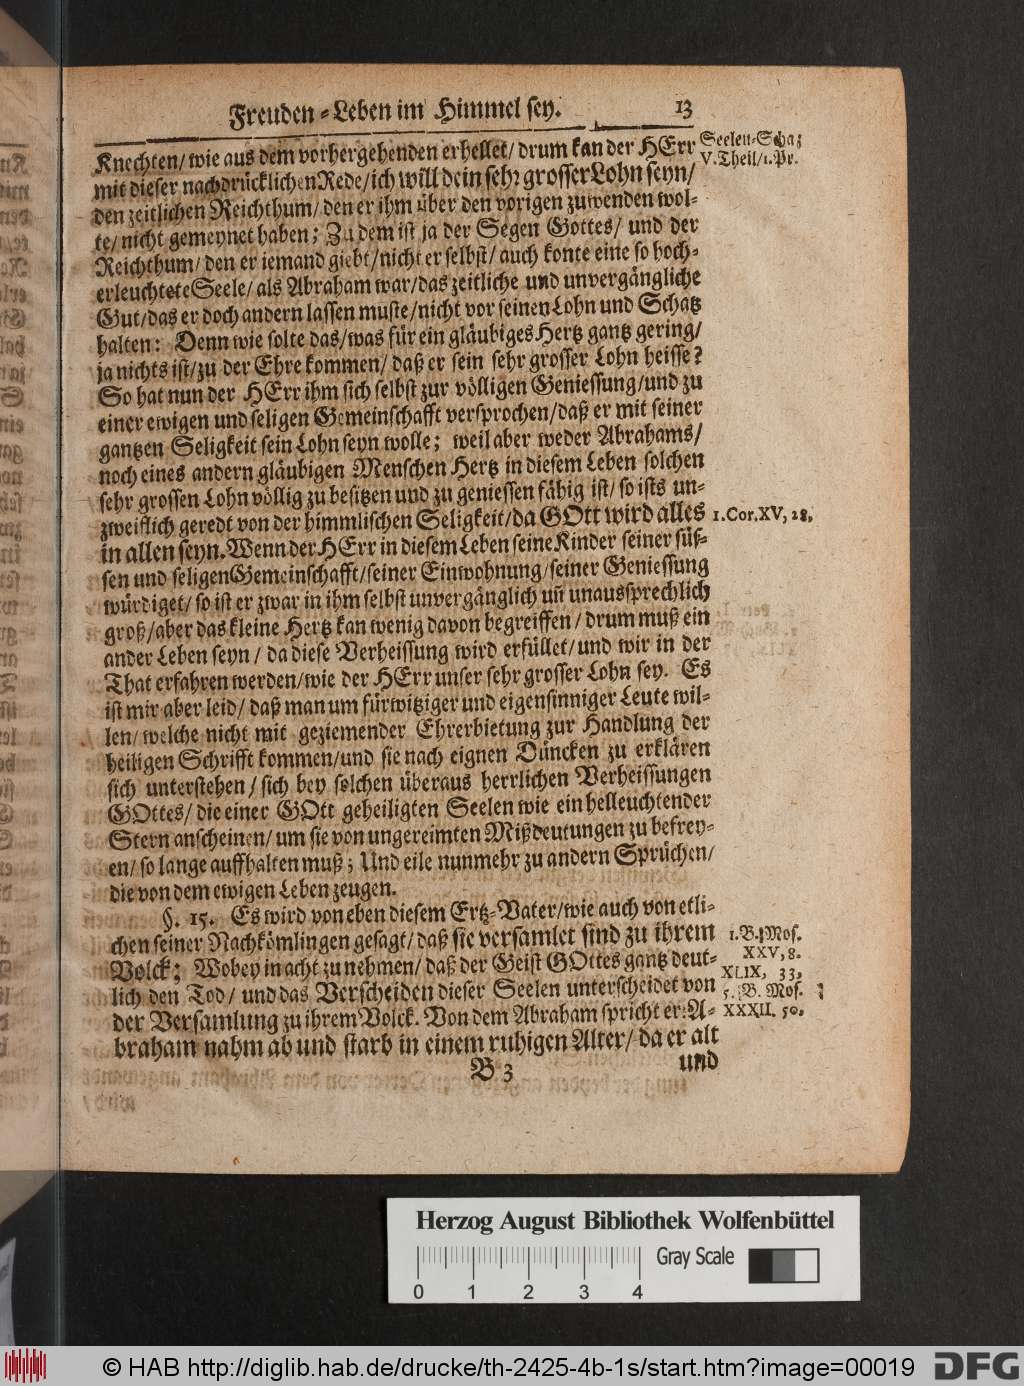 Freuden-Leben im Himmel sey. 13
Knechten/ wie aus dem vorhergehenden erhellet/ drum kan der HErr
Seelen-Schaz
V. Theil/1. Pr.
mit dieser nachdrücklichen Rede/ich will dein sehr grosser Lohn seyn/
den zeitlichen Reichthum/ den er ihm über den vorigen zuwenden wol-
te/ nicht gemeynet haben; Zu dem ist ja der Segen Gottes/ und der
Reichthum/ den er iemand giebt/nicht er selbst/ auch konte eine so hoch-
erleuchtete Seele/ als Abraham war/das zeitliche und unvergängliche
Gut/das er doch andern lassen muste/nicht vor seinen Lohn und Schatz
halten: Denn wie solte das/was für ein gläubiges Hertz gantz gering/
ja nichts ist/zu der Ehre kommen/ daß er sein sehr grosser Lohn heisse?
So hat nun der HErr ihm sich selbst zur völligen Geniessung/und zu
einer ewigen und seligen Gemeinschafft versprochen/daß er mit seiner
gantzen Seligkeit sein Lohn seyn wolle; weil aber weder Abrahams/
noch eines andern gläubigen Menschen Hertz in diesem Leben solchen
sehr grossen Lohn völlig zu besitzen und zu geniessen fähig ist/ so ists un-
zweiflich geredt von der himmlischen Seligkeit/da GOtt wird alles
1. Cor. XV, 28.
in allen seyn. Wenn der HErr in diesem Leben seine Kinder seiner süs-
sen und seligen Gemeinschafft/seiner Einwohnung/seiner Geniessung
würdiget/ so ist er zwar in ihm selbst unvergänglich uñ unaussprechlich
groß/aber das kleine Hertz kan wenig davon begreiffen/ drum muß ein
ander Leben seyn/ da diese Verheissung wird erfüllet/und wir in der
That erfahren werden/wie der HErr unser sehr grosser Lohn sey. Es
ist mir aber leid/ daß man um fürwitziger und eigensinniger Leute wil-
len/ welche nicht mit geziemender Ehrerbietung zur Handlung der
heiligen Schrifft kommen/und sie nach eignen Düncken zu erklären
sich unterstehen/ sich bey solchen überaus herrlichen Verheissungen
GOttes/ die einer GOtt geheiligten Seelen wie ein helleuchtender
Stern anscheinen/ um sie von ungereimten Mißdeutungen zu befrey-
en/ so lange auffhalten muß; Und eile nunmehr zu andern Sprüchen/
die von dem ewigen Leben zeugen.
§. 15. Es wird von eben diesem Ertz-Vater/wie auch von etli-
chen seiner Nachkömlingen gesagt/ daß sie versamlet sind zu ihrem
1. B. Mos.
XXV, 8.
Volck; Wobey in acht zu nehmen/ daß der Geist GOttes gantz deut-
XLIX, 33.
lich den Tod/ und das Verscheiden dieser Seelen unterscheidet von
5. B. Mos.
der Versamlung zu ihrem Volck. Von dem Abraham spricht er: A-
XXXII. 50.
braham nahm ab und starb in einem ruhigen Alter/ da er alt
B 3 und
Herzog August Bibliothek Wolfenbüttel
Gray Scale
0 1 2 3 4
© HAB http://diglib.hab.de/drucke/th-2425-4b-1s/start.htm?image=00019 DFG